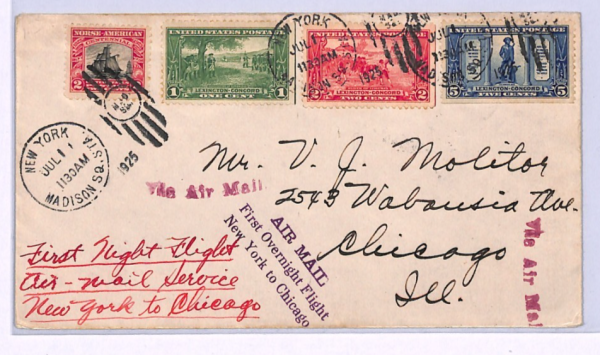 NORSE-AMERICAN
CENTENNIAL
2
UNITED STATES POSTAGE
1 LEXINGTON-CONCORD 1
ONE CENT
UNITED STATES POSTAGE
LEXINGTON-CONCORD 2
TWO CENTS
UNITED STATES POSTAGE
5 LEXINGTON-CONCORD 5
FIVE CENTS
NEW YORK
JUL 1
1130AM
1925
NEW YORK
JUL 1
1130AM
MADISON SQ. STA.
1925
Mr. V. J. Molitor
2543 Wabansia Ave.
Chicago
Ill.
Via Air Mail
AIR MAIL
First Overnight Flight
New York to Chicago
Via Air Mail
First Night Flight
Air-mail Service
New York to Chicago